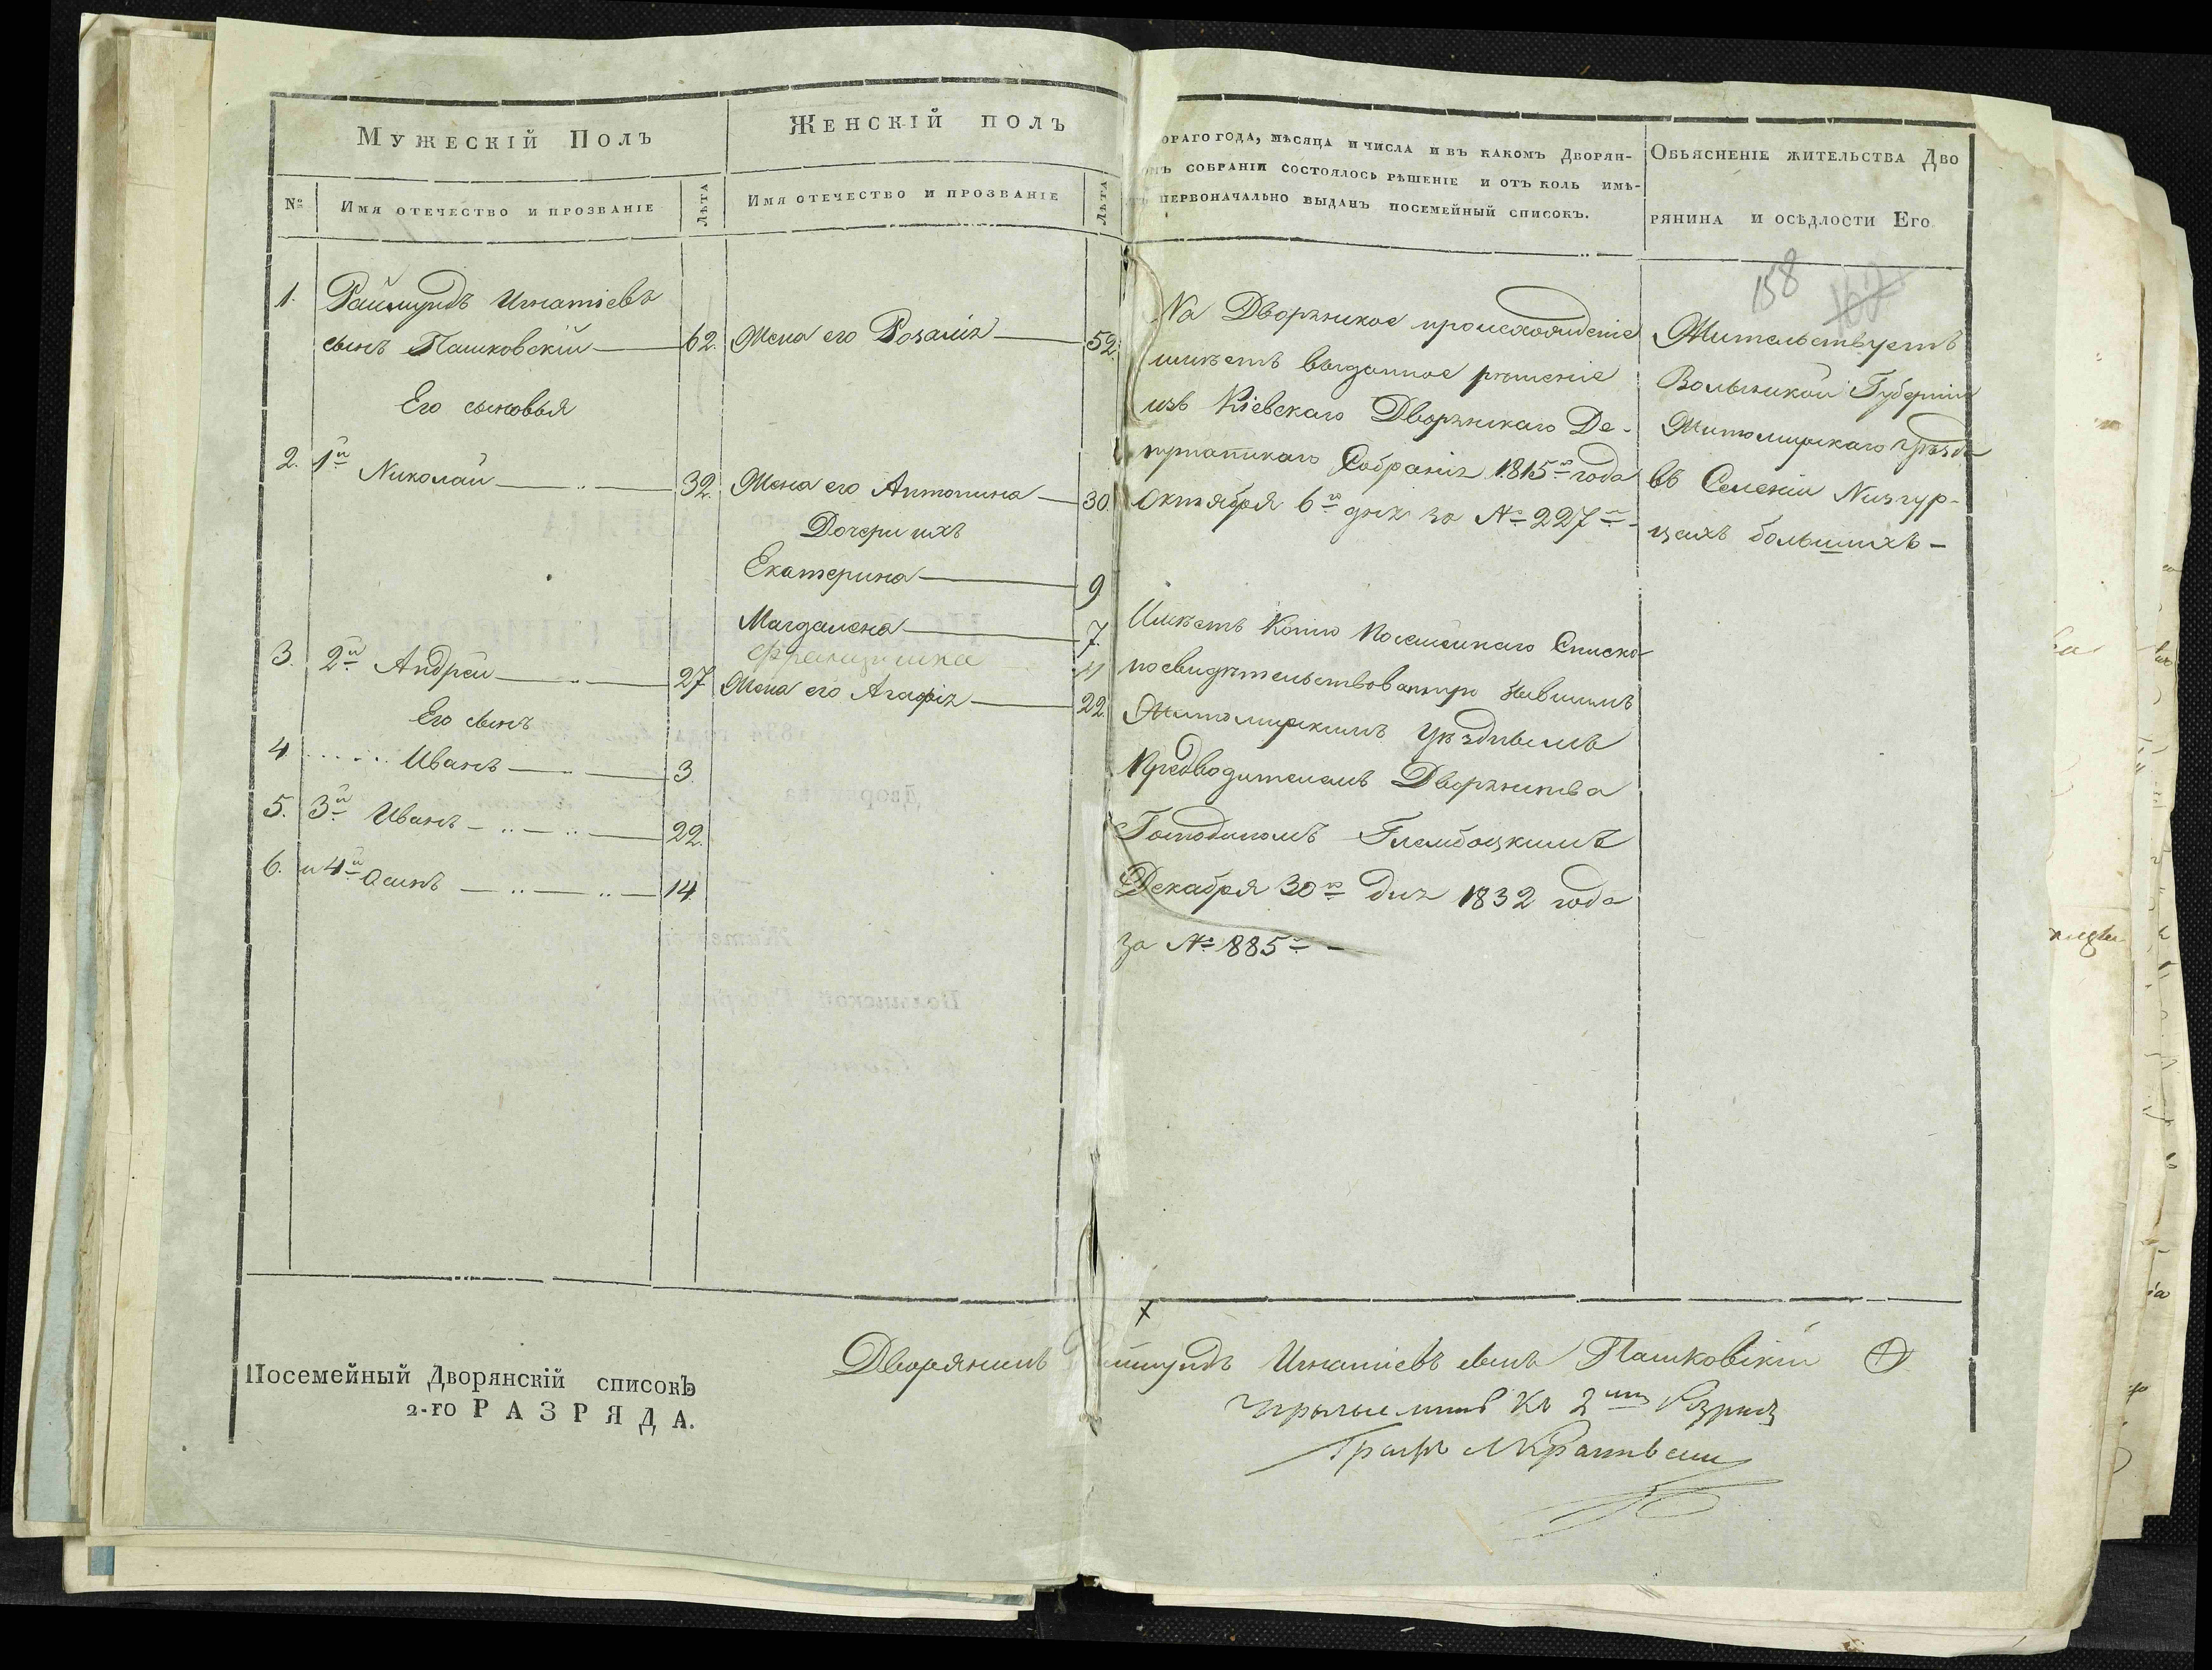 Мужескій Полъ
Женскій полъ
№
Имя отечество и прозваніе
Лѣта
Имя отечество и прозваніе
Лѣта
1.
Раймундъ Игнатіевъ
сынъ Пашковскій
62.
Жена его Розалія
52.
Его сыновья
2.
1й Николай
32.
Жена его Антонина
30.
Дочери ихъ
Екатерина
9
Магдалена
7.
Францишка
4
3.
2й Андрей
27
Жена его Агафія
22.
Его сынъ
4.
Иванъ
3.
5.
3й Иванъ
22.
6.
и 4й Осипъ
14.
Посемейный Дворянскій списокъ
2-го РАЗРЯДА.
ораго года, мѣсяца и числа и въ какомъ Дворян-
омъ собраніи состоялось рѣшеніе и отъ коль имѣ-
первоначально выданъ посемейный списокъ.
Объясненіе жительства Дво
рянина и осѣдлости Его
158
На Дворянское происхожденіе
имѣетъ выданное рѣшеніе
изъ Кіевскаго Дворянскаго Де-
путатскаго Собранія 1815го года
Октября 6го дня за № 227м-
Жительствуетъ
Волынской Губерніи
Житомирскаго уѣзда
въ Селеніи Низгур-
цахъ большихъ-
Имѣетъ Копію Посемейнаго Списка
посвидѣтельствованную бывшимъ
Житомирскимъ Уѣзднымъ
Предводителемъ Дворянства
Господиномъ Глембоцкимъ
Декабря 30го дня 1832 года
за № 885. -
Дворянинъ
ймундъ Игнатіевъ сынъ Пашковскій
къ 2му
Графъ